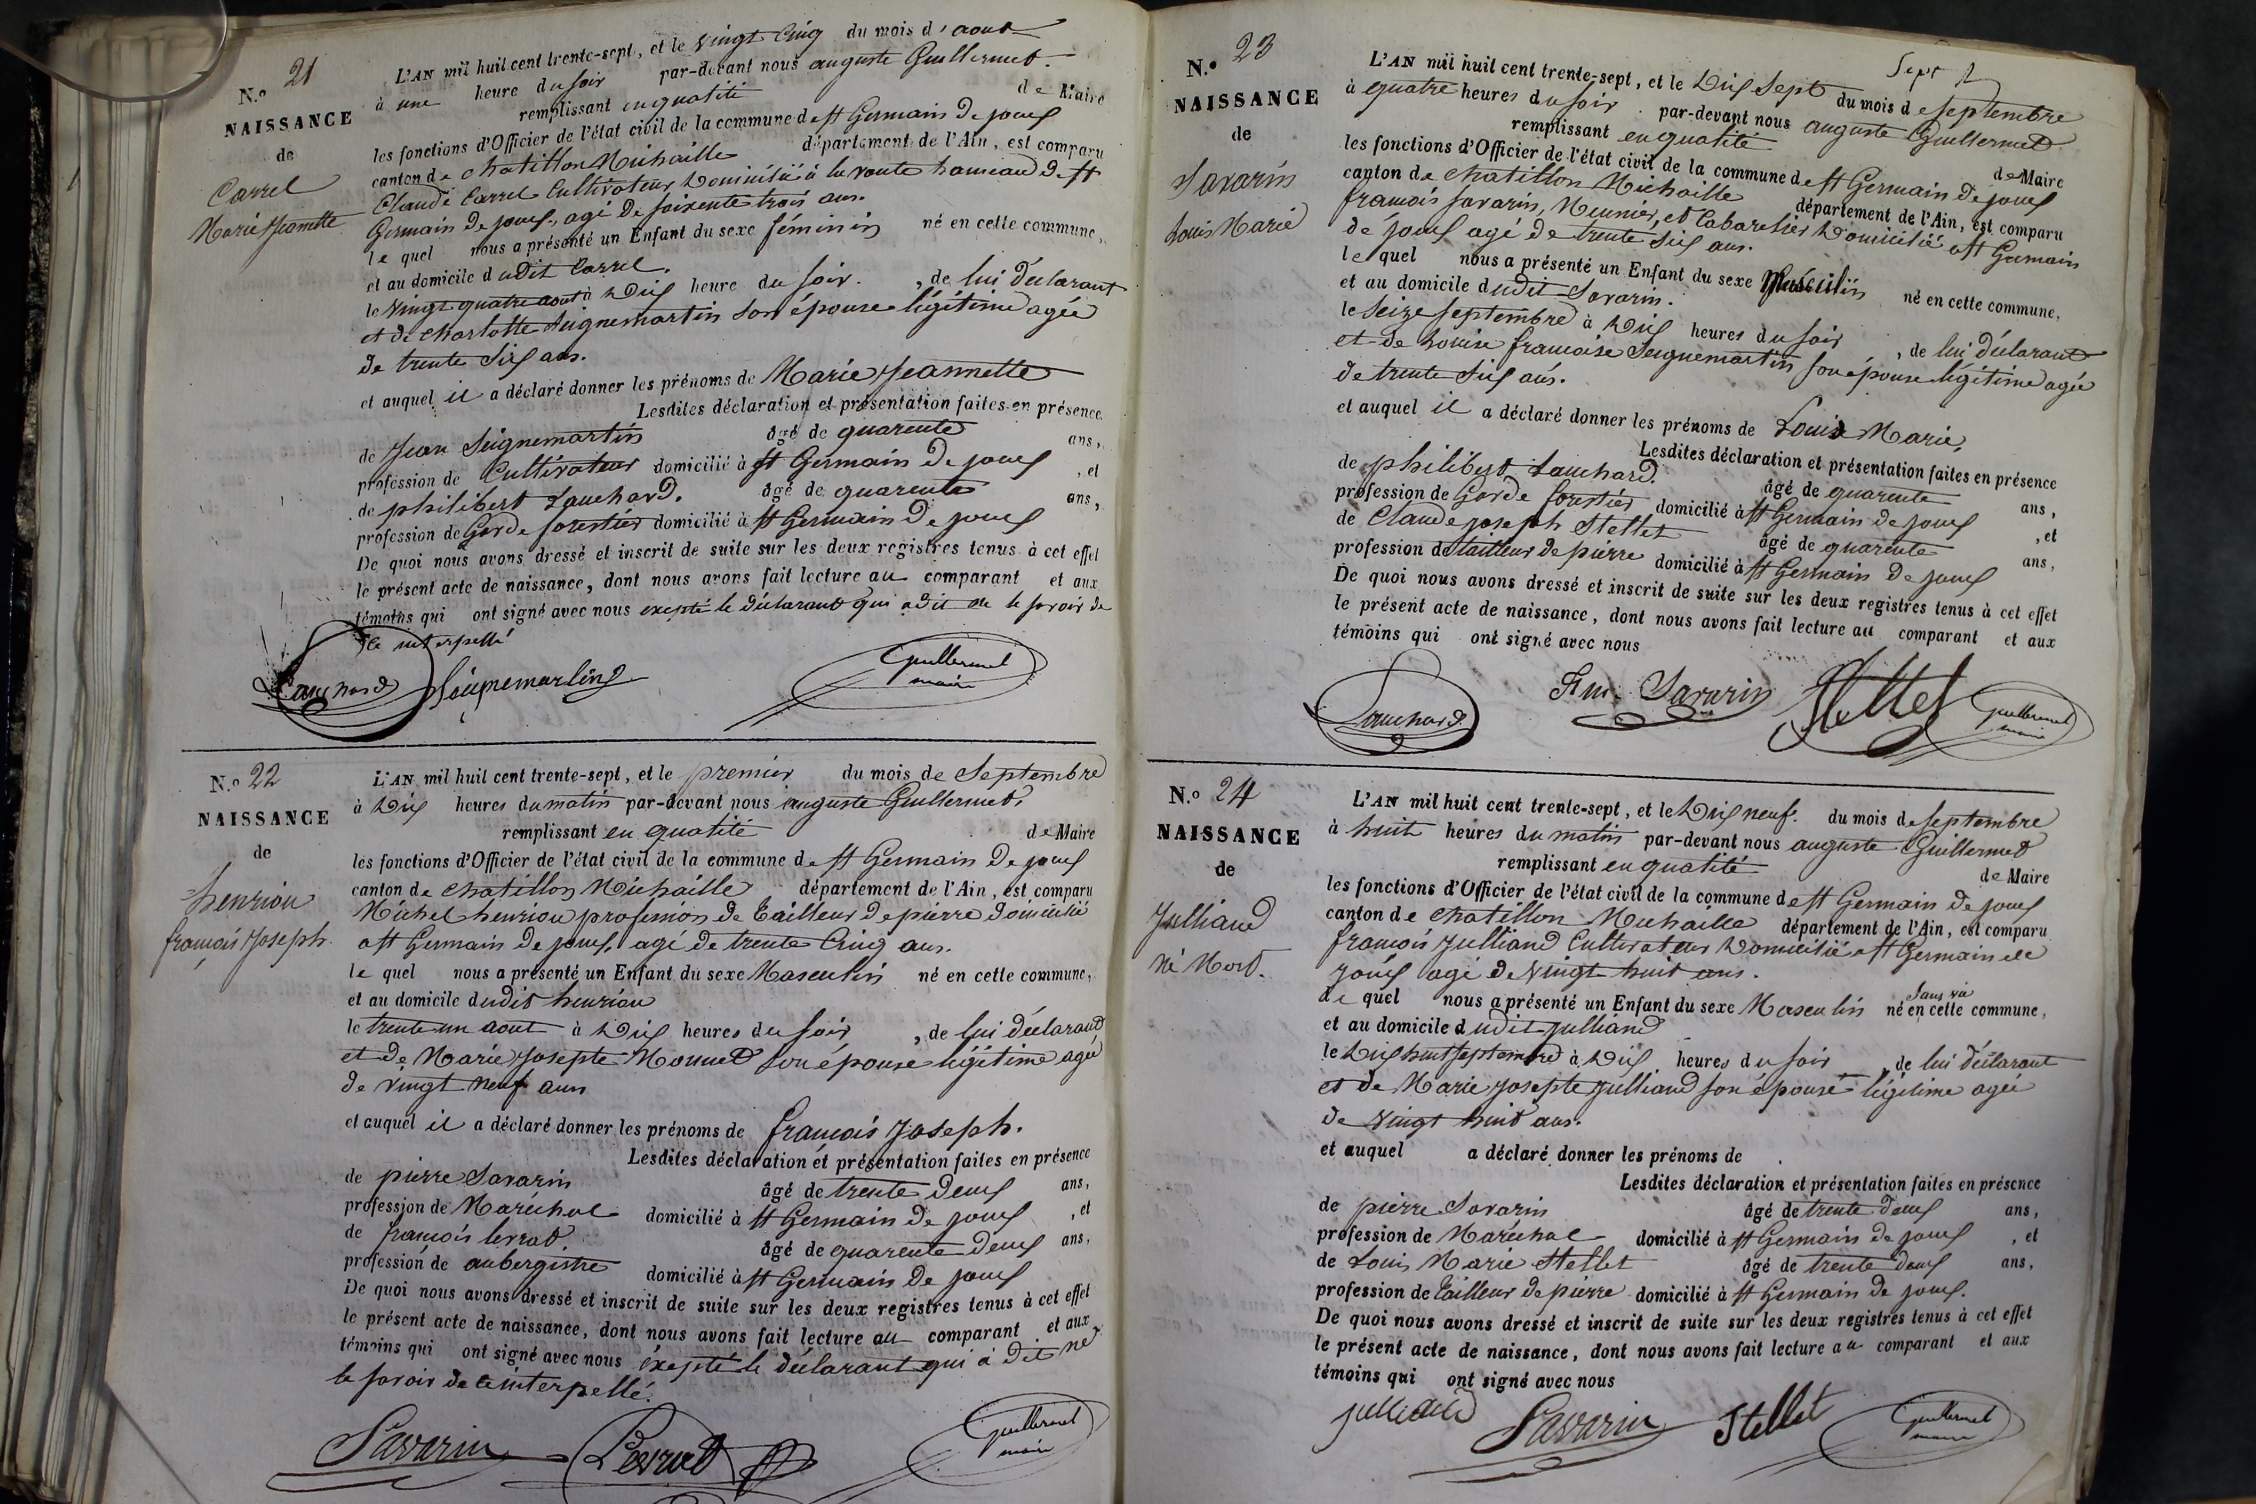 N.o 21
NAISSANCE
de
Carrel
Marie Jeannette
L'AN mil huil cent trente-sept, et le vingt cinq du mois d'aout
à une heure du soir par-devant nous auguste Guillermet
remplissant en qualité de Maire
les fonctions d'Officier de l'état civil de la commune de St Germain de joux
canton de chatillon Michaille département de l'Ain, est comparu
Claude Carrel Cultivateur, Domicilié à la route hameau de St
Germain de joux, agé de soixente trois ans.
le quel nous a présenté un Enfant du sexe féminin né en cette commune,
et au domicile dudit Carrel.
le vingt quatre aout à Dix heure du soir. , de lui déclarant
et de charlotte Seignemartin son épouse légitime agée
de trente six ans.
et auquel il a déclaré donner les prénoms de Marie Jeannette
Lesdites déclaration et présentation faites en présence
de Jean Seignemartin âgé de quarente ans,
profession de Cultivateur domicilié à St Germain de joux , et
de philibert Lauchard. âgé de quarente ans,
profession de Garde forestier domicilié à St Germain de joux
De quoi nous avons dressé et inscrit de suite sur les deux registres tenus à cet effet
le présent acte de naissance, dont nous avons fait lecture au comparant et aux
témoins qui ont signé avec nous excepté le déclarant qui a dit ne le savoir de
ce interpellé
Lauchard Seignemartin Guillermet
maire
N.o 22
NAISSANCE
de
henriou
françois Joseph.
L'AN mil huil cent trente-sept, et le premier du mois de Septembre
à Dix heures du matin par-devant nous auguste Guillermet,
remplissant en qualité de Maire
les fonctions d'Officier de l'état civil de la commune de St Germain de joux
canton de chatillon Michaille département de l'Ain, est comparu
Michel henriou profession de Tailleur de pierre domicilié
a St Germain de joux, agé de trente Cinq ans.
le quel nous a présenté un Enfant du sexe Masculin né en cette commune,
et au domicile dudit henriou
le trente un aout à Dix heures du soir , de lui déclarant
et de Marie Josepte Monnet son épouse légitime agée
de vingt neuf ans
et auquel il a déclaré donner les prénoms de françois Joseph.
Lesdites déclaration et présentation faites en présence
de pierre Savarin âgé de trente deux ans,
profession de Maréchal domicilié à St Germain de joux , et
de françois levrat. âgé de quarente deux ans,
profession de aubergistre domicilié à St Germain de joux
De quoi nous avons dressé et inscrit de suite sur les deux registres tenus à cet effet
le présent acte de naissance, dont nous avons fait lecture au comparant et aux
témoins qui ont signé avec nous éxcepté le déclarant qui à dit ne
le savoir de ce interpellé.
Savarin Levrat Guillermet
maire
Sept
N.o 23
NAISSANCE
de
Savarin
Louis Marie
L'AN mil huil cent trente-sept, et le Dix Sept du mois de septembre
à quatre heures du soir par-devant nous auguste Guillermet
remplissant en qualité de Maire
les fonctions d'Officier de l'état civil de la commune de St Germain de joux
canton de chatillon Michaille département de l'Ain, est comparu
françois savarin, Meunier, et Cabaretier Domicilié a St Germain
de joux agé de trente six ans.
le quel nous a présenté un Enfant du sexe Masculin né en cette commune,
et au domicile dudit Savarin.
le Seize septembre à Dix heures du soir , de lui déclarant
et de Louise francoise Seignemartin son épouse légitime agée
de trente six ans.
et auquel il a déclaré donner les prénoms de Louis Marie,
Lesdites déclaration et présentation faites en présence
de philibert Lauchard. âgé de quarente ans,
profession de Garde forestier domicilié à St Germain de joux , et
de Claude joseph Stellet âgé de quarente ans,
profession de tailleur de pierre domicilié à St Germain de joux
De quoi nous avons dressé et inscrit de suite sur les deux registres tenus à cet effet
le présent acte de naissance, dont nous avons fait lecture au comparant et aux
témoins qui ont signé avec nous
Lauchard Savarin Stellet Guillermet
maire
N.o 24
NAISSANCE
de
Julliand
Né Mort.
L'AN mil huit cent trente-sept, et le Dix neuf. du mois de septembre
à huit heures du matin par-devant nous auguste Guillermet
remplissant en qualité de Maire
les fonctions d'Officier de l'état civil de la commune de St Germain de joux
canton de chatillon Michaille département de l'Ain, est comparu
françois Julliand Cultivateur Domicilié a St Germain de
joux agé de vingt huit ans.
le quel nous a présenté un Enfant du sexe Masculin né sans vie en cette commune,
et au domicile dudit julliand
le Dix huit septembre à Dix heures du soir , de lui déclarant
et de Marie Josepte Julliand son épouse légitime agée
de vingt huit ans.
et auquel a déclaré donner les prénoms de
Lesdites déclaration et présentation faites en présence
de pierre Savarin âgé de trente deux ans,
profession de Maréchal domicilié à St Germain de joux , et
de Louis Marie Stellet âgé de trente deux ans,
profession de Tailleur de pierre domicilié à St Germain de joux.
De quoi nous avons dressé et inscrit de suite sur les deux registres tenus à cet effet
le présent acte de naissance, dont nous avons fait lecture au comparant et aux
témoins qui ont signé avec nous
julliand Savarin Stellet Guillermet
maire